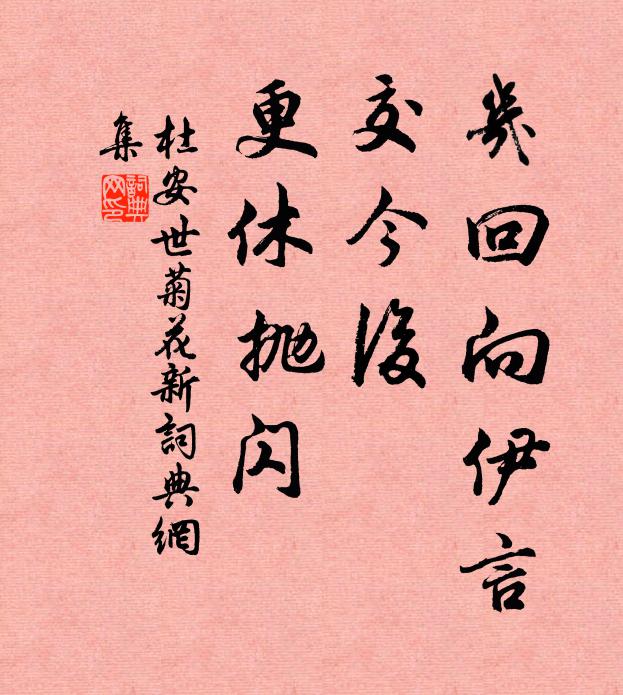 幾回向伊言
交今後
更休拋閃
杜安世菊花新詞典網
集
詞典
网印